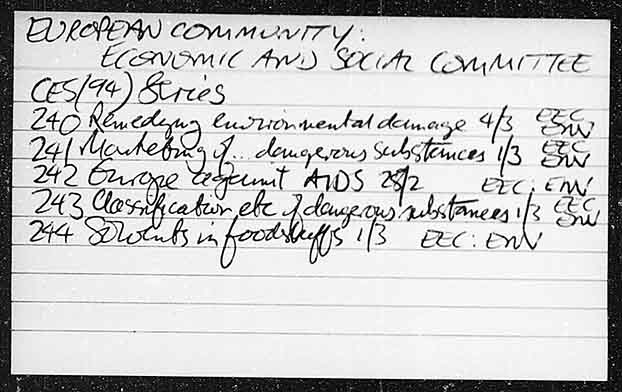 EUROPEAN COMMUNITY:
ECONOMIC AND SOCIAL COMMITTEE
CES(94) Series
240 Remedying environmental damage 4/3 EEC ENV
241 Marketing of... dangerous substances 1/3 EEC ENV
242 Europe against AIDS 25/2 EEC: ENV
243 Classification etc of dangerous substances 1/3 EEC ENV
244 Solvents in foodstuffs 1/3 EEC: ENV